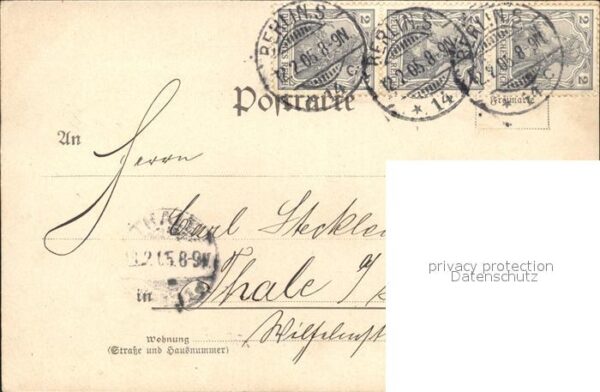 BERLIN.S BERLIN.S BERLIN.S
12.2.05.8-9N 12.2.05.8-9N 12.2.05.8-9N
* 14 c. * 14 c. * 14 c.
2 2 2 2
Postkarte
Freimarke
An
Herrn
THALE
13.2.05.8-9V
Carl Steckle
in Thale a/
Wilhelmst
Wohnung
(Straße und Hausnummer)
privacy protection
Datenschutz